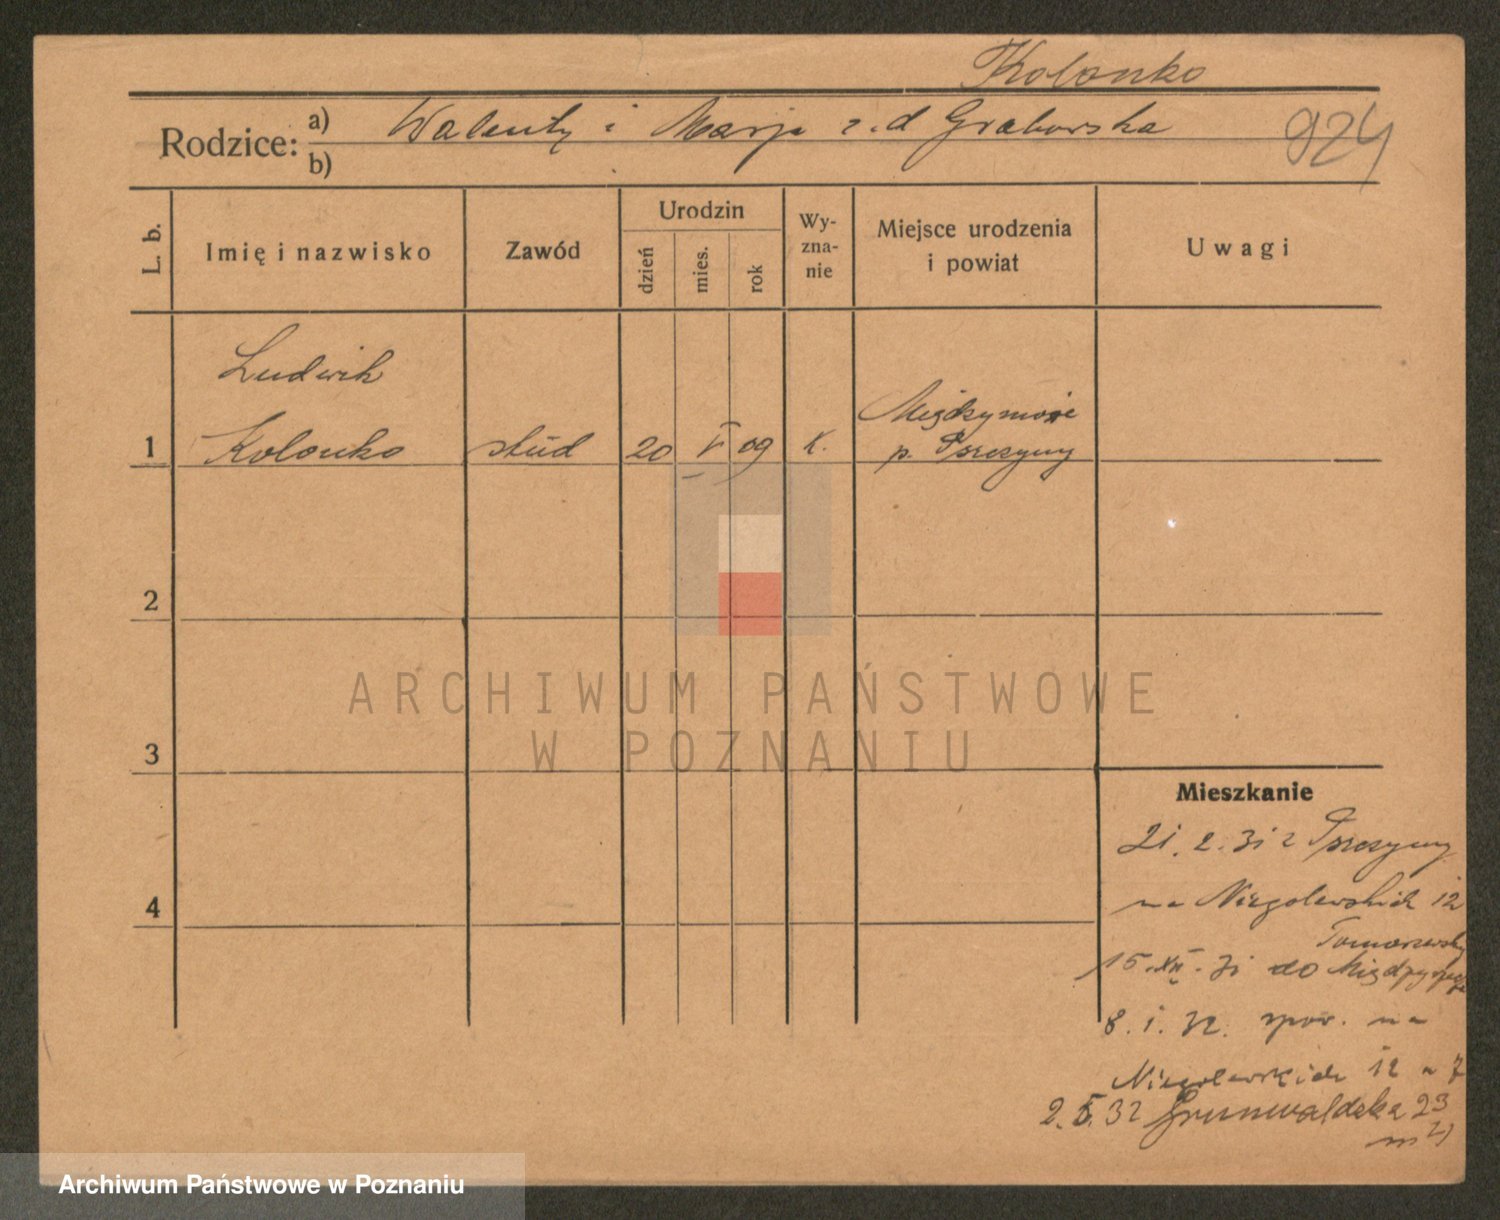 Kolonko
Rodzice: a) Walenty i Marja z.d Grabowska
b)
924
L. b.
Imię i nazwisko
Zawód
Urodzin
dzień
mies.
rok
Wy-
zna-
nie
Miejsce urodzenia
i powiat
Uwagi
Ludwik
1 Kolonko stud 20 V 09 K.
p. Pszczyny
2
3
4
ARCHIWUM PAŃSTWOWE
W POZNANIU
Mieszkanie
21. 2. 31 z Pszczyny
na Niegolewskich 12
15. XII. 31 do
8. I. 32. spow. na
Niegolewskich 12 m 7
2. 5. 32 Grunwaldzka 23
Archiwum Państwowe w Poznaniu